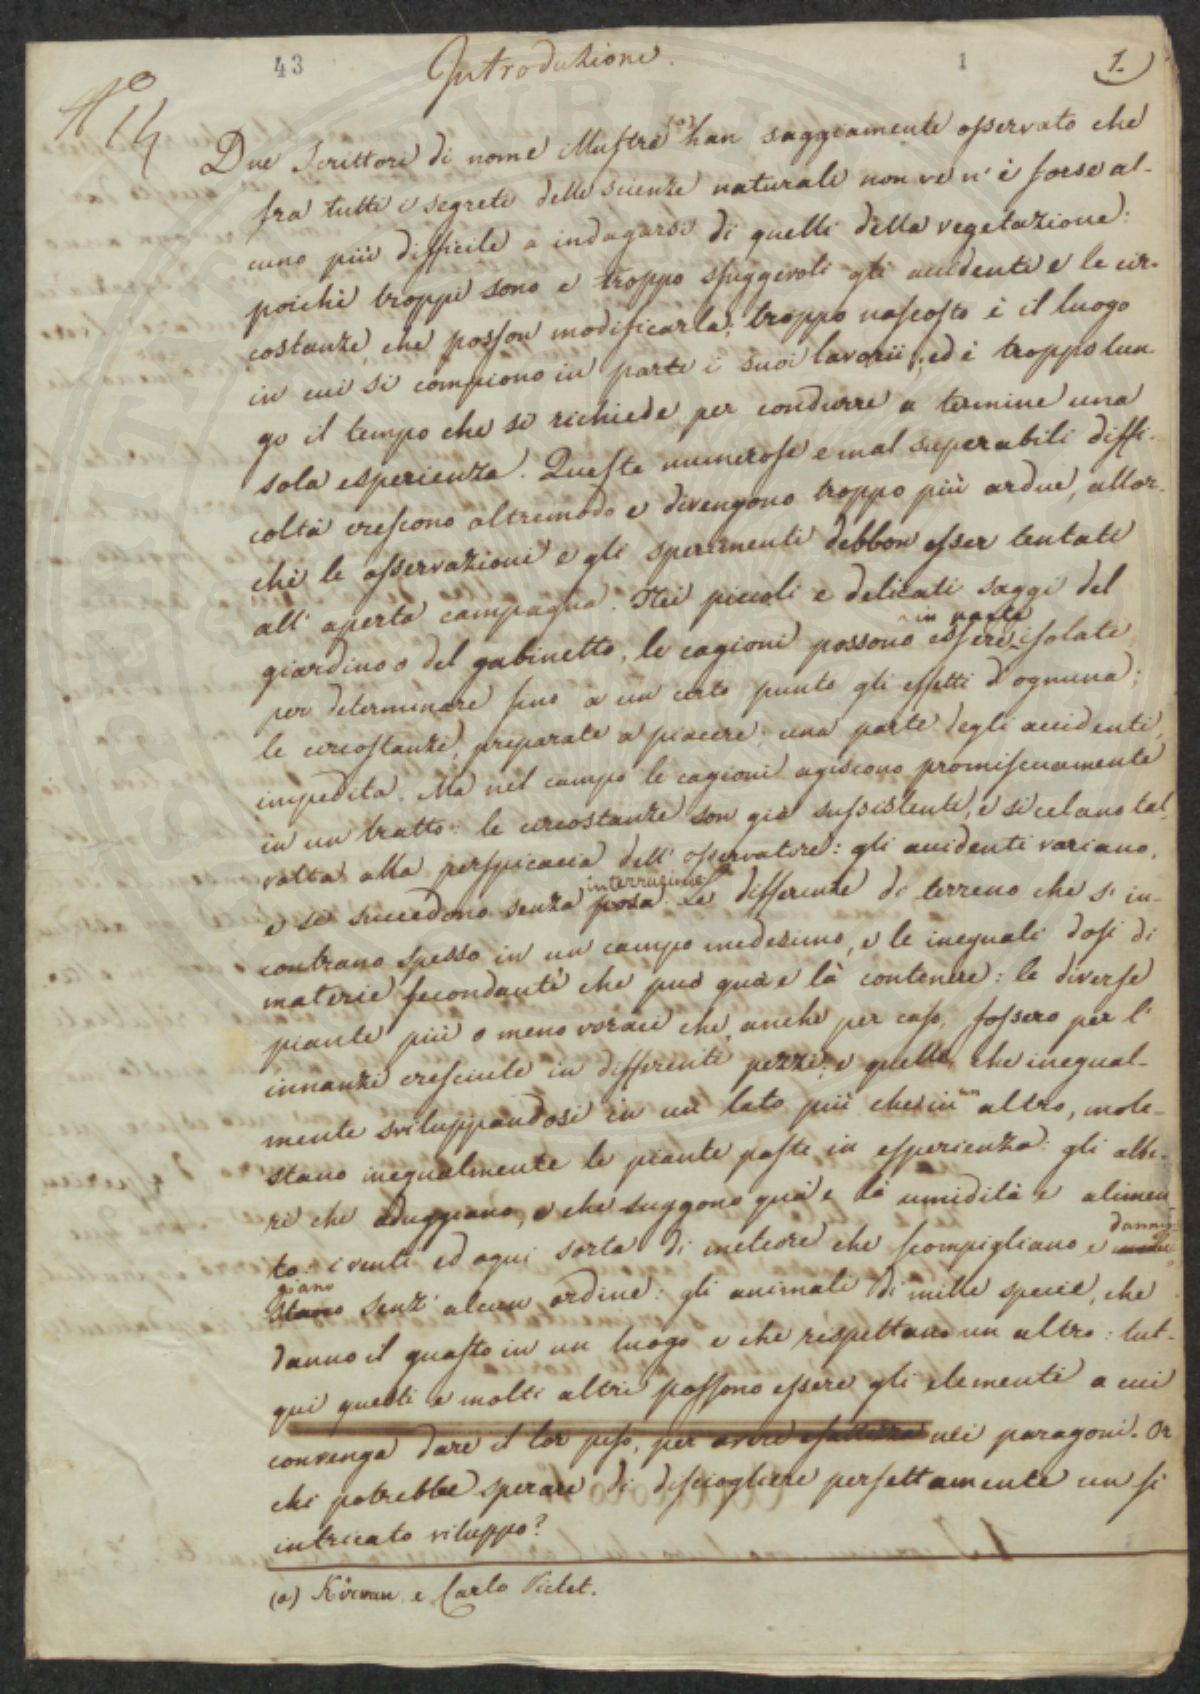 43
Introduzione.
1
1.
N.o 14
Due Scrittori di nome illustre (a) han saggiamente osservato che
fra tutti i segreti delle scienze naturali non ve n'è forse al-
cuno più difficile a indagarsi di quelli della vegetazione:
poichè troppi sono e troppo sfuggevoli gli accidenti e le cir-
costanze, che posson modificarla; troppo nascosto è il luogo
in cui si compiono in parte i suoi lavorii; ed è troppo lun-
go il tempo che si richiede per condurre a termine una
sola esperienza. Queste numerose e mal superabili diffi-
coltà crescono oltremodo e divengono troppo più ardue, allor-
chè le osservazioni e gli sperimenti debbon esser tentati
all'aperta campagna. Nei piccoli e delicati saggi del
giardino o del gabinetto, le cagioni possono essere in parte isolate
per determinare fino a un certo punto gli effetti d'ognuna;
le circostanze, preparate a piacere; una parte degli accidenti,
impedita. Ma nel campo le cagioni agiscono promiscuamente
in un tratto: le circostanze son già sussistenti, e si celano tal
volta alla perspicacia dell'osservatore: gli accidenti variano,
e si succedono senza posa interruzione. Le differenze di terreno che s'in-
contrano spesso in un campo medesimo, e le ineguali dosi di
materie fecondanti che può quà e là contenere: le diverse
piante più o meno voraci che, anche per caso, fossero per l'
innanzi cresciute in differenti pezzi; e quelle, che inegual-
mente sviluppandosi in un lato più che in un altro, mole-
stano inegualmente le piante poste in esperienza: gli albe-
ri che aduggiano, e che suggono quà e là umidità e alimen
to: i venti ed ogni sorta di meteore che scompigliano e danneg
giano senz'alcun ordine: gli animali di mille specie, che
danno il guasto in un luogo e che rispettano un altro: tut-
qui questi e molti altri possono essere gli elementi a cui
convenga dare il lor peso, per avere esattezza nei paragoni. Or
chi potrebbe sperare di disciogliere perfettamente un sì
intricato viluppo?
(a) Kirwan e Carlo Pictet.